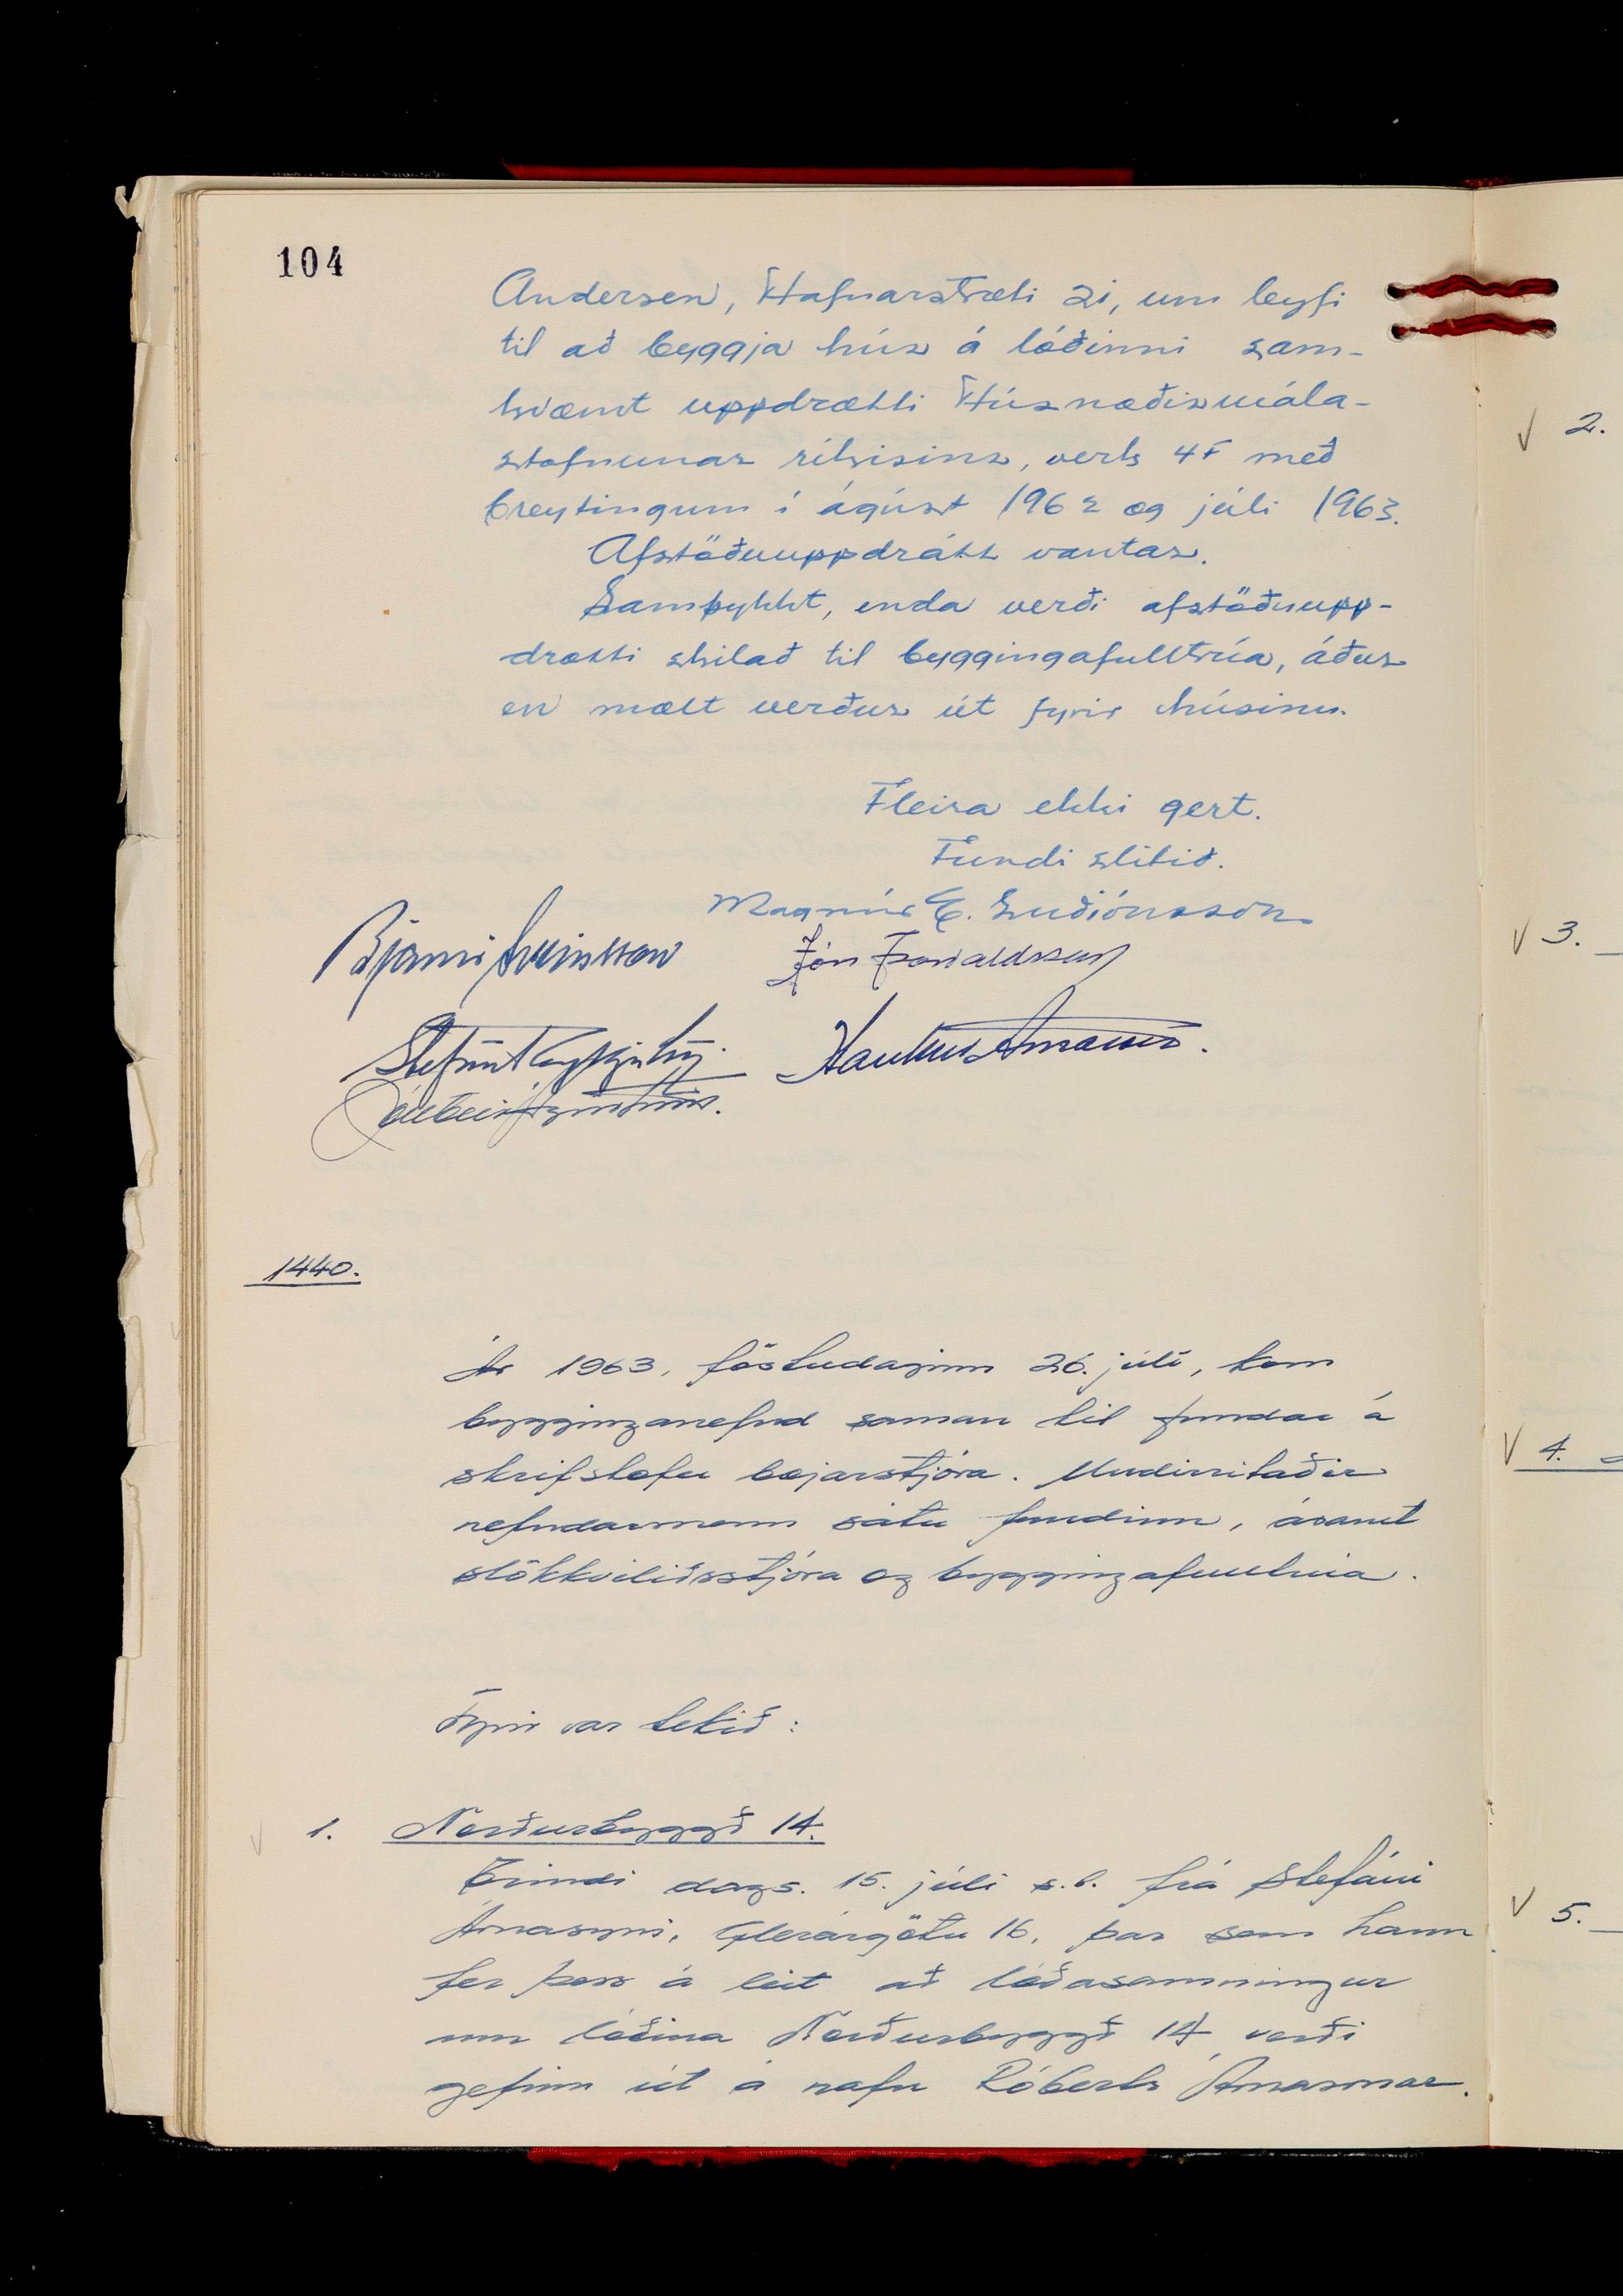 104
Andersen, Hafnarstræti 21, um leyfi
til að byggja hús á lóðinni sam-
kvæmt uppdrætti Húsnæðismála-
stofnunar ríkisins, verk 4F með
breytingum í ágúst 1962 og júli 1963.
Afstöðuuppdrátt vantar.
Samþykkt, enda verði afstöðuupp-
drætti skilað til byggingafulltrúa, áður
en mælt verður út fyrir húsinu.
Fleira ekki gert.
Fundi slitið.
Magnús E. Guðjónsson
Bjarni Sveinsson
Jón Þorvaldsson
Stefán Reykjalín
Haukur Árnason.
1440.
Ár 1963, föstudaginn 26. júlí, kom
bygginganefnd saman til fundar á
skrifstofu bæjarstjóra. Undirritaðir
nefndarmenn sátu fundinn, ásamt
slökkviliðsstjóra og byggingafulltrúa.
Fyrir var tekið:
1. Norðurbyggð 14.
Erindi dags. 15. júlí s.l. frá Stefáni
Árnasyni, Glerárgötu 16, þar sem hann
fer þess á leit að lóðasamningur
um lóðina Norðurbyggð 14 verði
gefinn út á nafn Róberts Árnasonar.
2.
3.
4.
5.